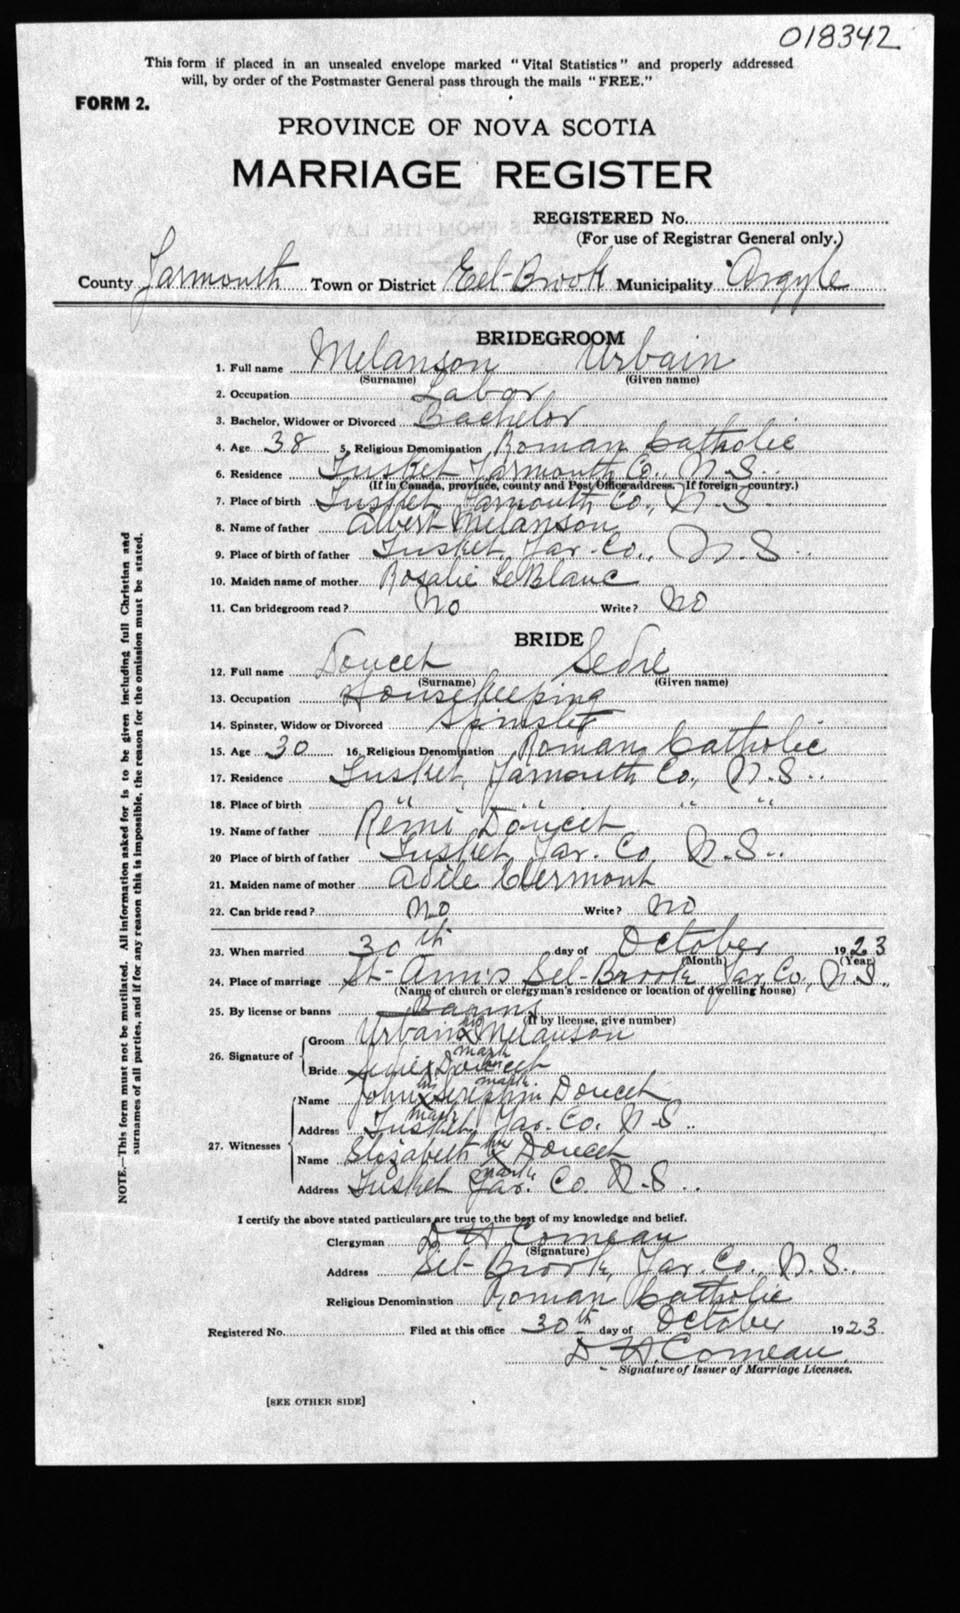 018342
This form if placed in an unsealed envelope marked "Vital Statistics" and properly addressed
will, by order of the Postmaster General pass through the mails "FREE."
FORM 2.
PROVINCE OF NOVA SCOTIA
MARRIAGE REGISTER
REGISTERED No.
(For use of Registrar General only.)
County Yarmouth Town or District Eel-Brook Municipality Argyle
BRIDEGROOM
1. Full name Melanson Urbain
(Surname) (Given name)
2. Occupation Labor
3. Bachelor, Widower or Divorced Bachelor
4. Age 38 5. Religious Denomination Roman Catholic
6. Residence Tusket Yarmouth Co., N.S.
(If in Canada, province, county and Post Office address. If foreign—country.)
7. Place of birth Tusket, Yarmouth Co., N.S.
8. Name of father Albert Melanson
9. Place of birth of father Tusket, Yar. Co., N.S.
10. Maiden name of mother Rosalie LeBlanc
11. Can bridegroom read? No Write? No
BRIDE
12. Full name Doucet Sedie
(Surname) (Given name)
13. Occupation Housekeeping
14. Spinster, Widow or Divorced Spinster
15. Age 30 16. Religious Denomination Roman Catholic
17. Residence Tusket, Yarmouth Co., N.S.
18. Place of birth " " " "
19. Name of father Rémi Doucet
20 Place of birth of father Tusket Yar. Co. N.S.
21. Maiden name of mother Adèle Clermont
22. Can bride read? No Write? No
23. When married 30th day of October 1923
(Month) (Year)
24. Place of marriage St-Ann's Eel-Brook Yar. Co., N.S.
(Name of church or clergyman's residence or location of dwelling house)
25. By license or banns Banns
(If by license, give number)
26. Signature of
Groom Urbain his X Melanson
mark
Bride Sedie X Doucet
mark
27. Witnesses
Name John his X Seraphin Doucet
mark
Address Tusket, Yar. Co. N.S.
Name Elizabeth her X Doucet
mark
Address Tusket Yar. Co. N.S.
I certify the above stated particulars are true to the best of my knowledge and belief.
Clergyman D H Comeau
(Signature)
Address Eel-Brook, Yar. Co., N.S.
Religious Denomination Roman Catholic
Registered No. Filed at this office 30th day of October 1923
D. H. Comeau
Signature of Issuer of Marriage Licenses.
[SEE OTHER SIDE]
NOTE.—This form must not be mutilated. All information asked for is to be given including full Christian and
surnames of all parties, and if for any reason this is impossible, the reason for the omission must be stated.